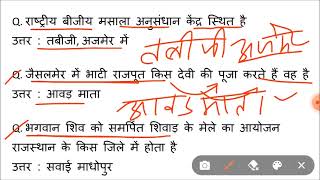 Q. राष्ट्रीय बीजीय मसाला अनुसंधान केंद्र स्थित है
उत्तर : तबीजी,अजमेर में
तबीजी अजमेर
Q. जैसलमेर में भाटी राजपूत किस देवी की पूजा करते हैं वह है
उत्तर : आवड माता
आवड माता।
Q. भगवान शिव को समर्पित शिवाड़ के मेले का आयोजन
राजस्थान के किस जिले में होता है
उत्तर : सवाई माधोपुर